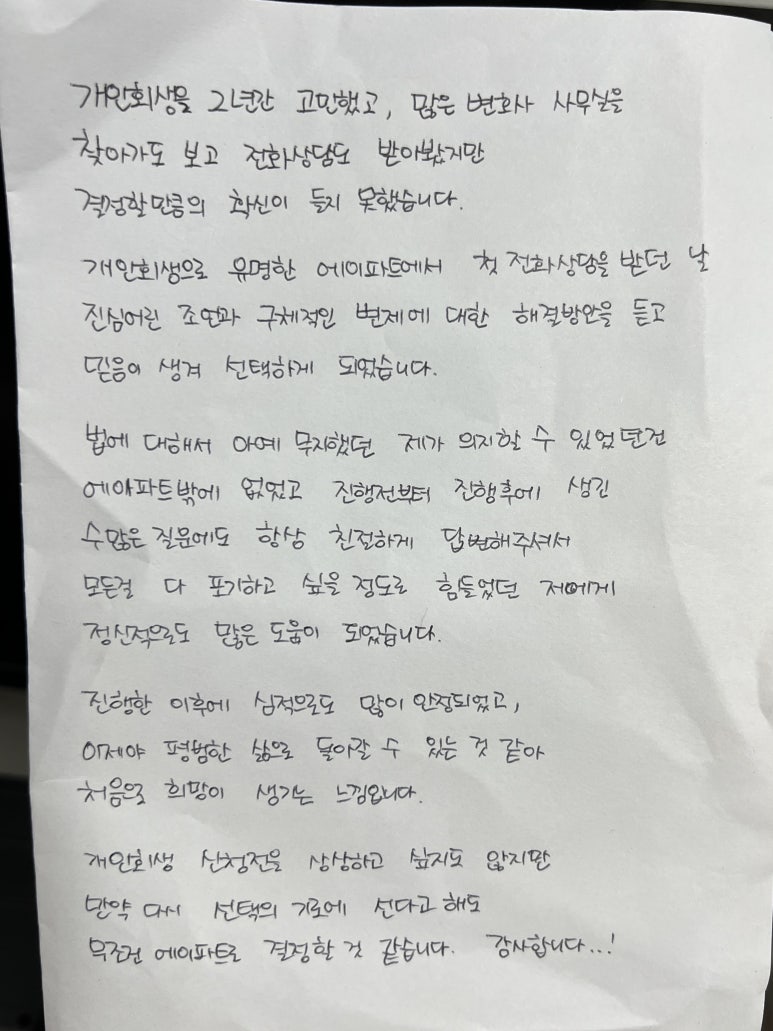 개인회생을 2년간 고민했고, 많은 변호사 사무실을
찾아가도 보고 전화상담도 받아봤지만
결정할만큼의 확신이 들지 못했습니다.
개인회생으로 유명한 에이파트에서 첫 전화상담을 받던 날
진심어린 조언과 구체적인 변제에 대한 해결방안을 듣고
믿음이 생겨 선택하게 되었습니다.
법에 대해서 아예 무지했던 제가 의지할 수 있었던건
에이파트밖에 없었고 진행전부터 진행후에 생긴
수많은 질문에도 항상 친절하게 답변해주셔서
모든걸 다 포기하고 싶을 정도로 힘들었던 저에게
정신적으로도 많은 도움이 되었습니다.
진행한 이후에 심적으로도 많이 안정되었고,
이제야 평범한 삶으로 돌아갈 수 있는 것 같아
처음으로 희망이 생기는 느낌입니다.
개인회생 신청전을 상상하고 싶지도 않지만
만약 다시 선택의 기로에 선다고 해도
무조건 에이파트로 결정할 것 같습니다. 감사합니다...!